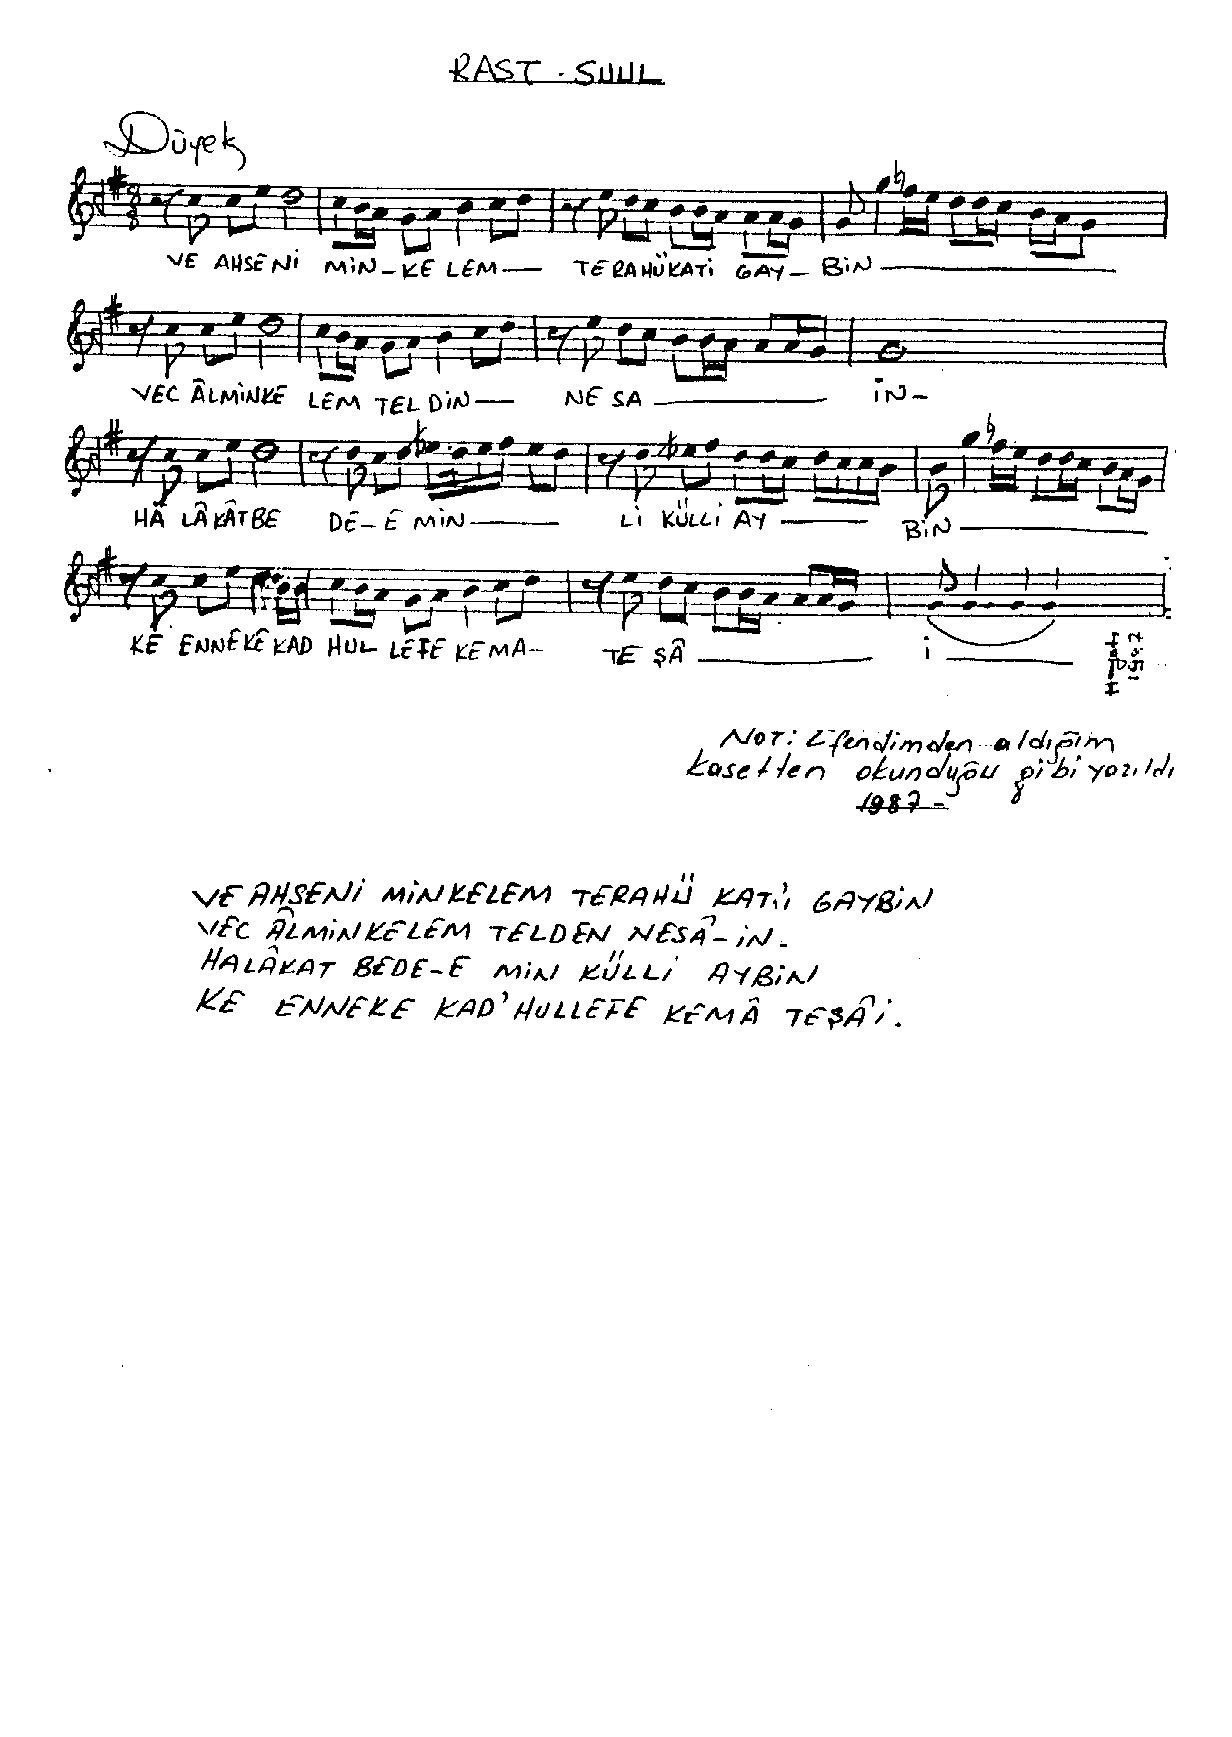 RAST - SUUL
Düyek
VE AHSENİ MİN-KELEM— TERAHÜKATİ GAY-BİN
VEC ÂLMİNKE LEM TELDİN— NESA — İN-
HÂ LÂKÂTBE DE-E MİN— Lİ KÜLLİ AY — BİN
KE ENNEKEKAD HUL LEFE KEMA- TE ŞÂ — İ
NOT: Efendimden aldığım
kasetten okunduğu gibi yazıldı
1987-
VE AHSENİ MİNKELEM TERAHÜ KATİ GAYBİN
VEC ÂLMİNKELEM TELDEN NESÂ-İN-
HALÂKAT BEDE-E MİN KÜLLİ AYBİN
KE ENNEKE KAD'HULLEFE KEMÂ TEŞÂ'İ.